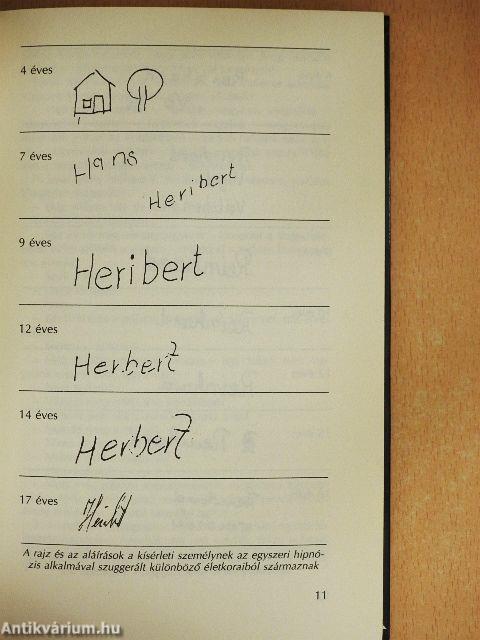 4 éves
7 éves
Hans
Heribert
9 éves
Heribert
12 éves
Herbert
14 éves
Herbert
17 éves
A rajz és az aláírások a kísérleti személynek az egyszeri hipnó-
zis alkalmával szuggerált különböző életkoraiból származnak
11
Antikvárium.hu